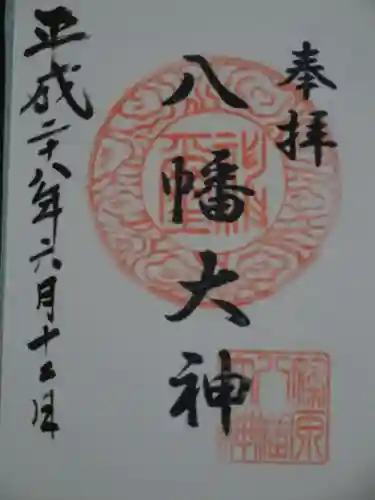 奉拝
八幡大神
平成二十八年六月十二日